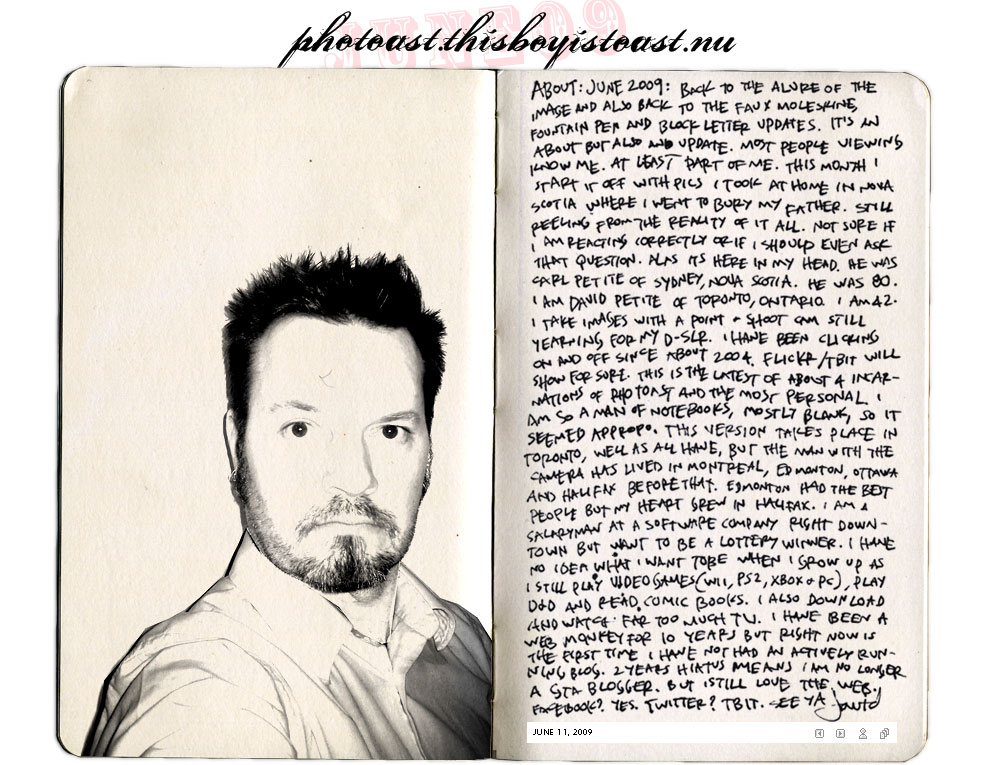 JUNE09
photoast.thisboyistoast.nu
ABOUT: JUNE 2009: BACK TO THE ALURE OF THE
IMAGE AND ALSO BACK TO THE FAUX MOLESKINE,
FOUNTAIN PEN AND BLOCK LETTER UPDATES. IT'S AN
ABOUT BUT ALSO AND UPDATE. MOST PEOPLE VIEWING
KNOW ME. AT LEAST PART OF ME. THIS MONTH I
START IT OFF WITH PICS I TOOK AT HOME IN NOVA
SCOTIA WHERE I WENT TO BURY MY FATHER. STILL
REELING FROM THE REALITY OF IT ALL. NOT SURE IF
I AM REACTING CORRECTLY OR IF I SHOULD EVEN ASK
THAT QUESTION. ALAS ITS HERE IN MY HEAD. HE WAS
CARL PETITE OF SYDNEY, NOVA SCOTIA. HE WAS 80.
I AM DAVID PETITE OF TORONTO, ONTARIO. I AM 42.
I TAKE IMAGES WITH A POINT & SHOOT CAM STILL
YEARNING FOR MY D-SLR. I HAVE BEEN CLICKING
ON AND OFF SINCE ABOUT 2004. FLICKR/TBIT WILL
SHOW FOR SURE. THIS IS THE LATEST OF ABOUT 4 INCAR-
NATIONS OF PHOTOAST AND THE MOST PERSONAL. I
AM SO A MAN OF NOTEBOOKS, MOSTLY BLANK, SO IT
SEEMED APPROPO. THIS VERSION TAKES PLACE IN
TORONTO, WELL AS ALL HAVE, BUT THE MAN WITH THE
CAMERA HAS LIVED IN MONTREAL, EDMONTON, OTTAWA
AND HALIFAX BEFORE THAT. EDMONTON HAD THE BEST
PEOPLE BUT MY HEART GREW IN HALIFAX. I AM A
SALARYMAN AT A SOFTWARE COMPANY RIGHT DOWN-
TOWN BUT WANT TO BE A LOTTERY WINNER. I HAVE
NO IDEA WHAT I WANT TO BE WHEN I GROW UP AS
I STILL PLAY VIDEO GAMES (WII, PS2, XBOX & PC), PLAY
D&D AND READ COMIC BOOKS. I ALSO DOWNLOAD
AND WATCH FAR TOO MUCH TV. I HAVE BEEN A
WEB MONKEY FOR 10 YEARS BUT RIGHT NOW IS
THE FIRST TIME I HAVE NOT HAD AN ACTIVELY RUN-
NING BLOG. 2 YEARS HIATUS MEANS I AM NO LONGER
A STA BLOGGER. BUT I STILL LOVE THE WEB.
FACEBOOK? YES. TWITTER? TBIT. SEE YA
JUNE 11, 2009